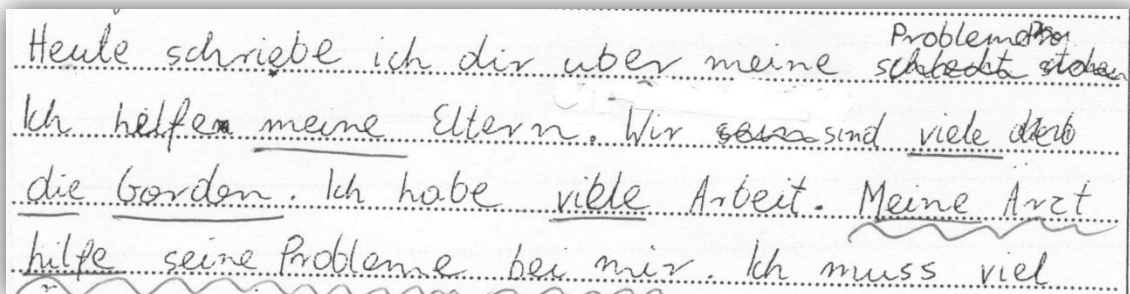 Heute schriebe ich dir uber meine Probleme
Ich helfen meine Eltern. Wir sind viele
die Gorden. Ich habe viele Arbeit. Meine Arzt
hilfe seine Probleme bei mir. Ich muss viel